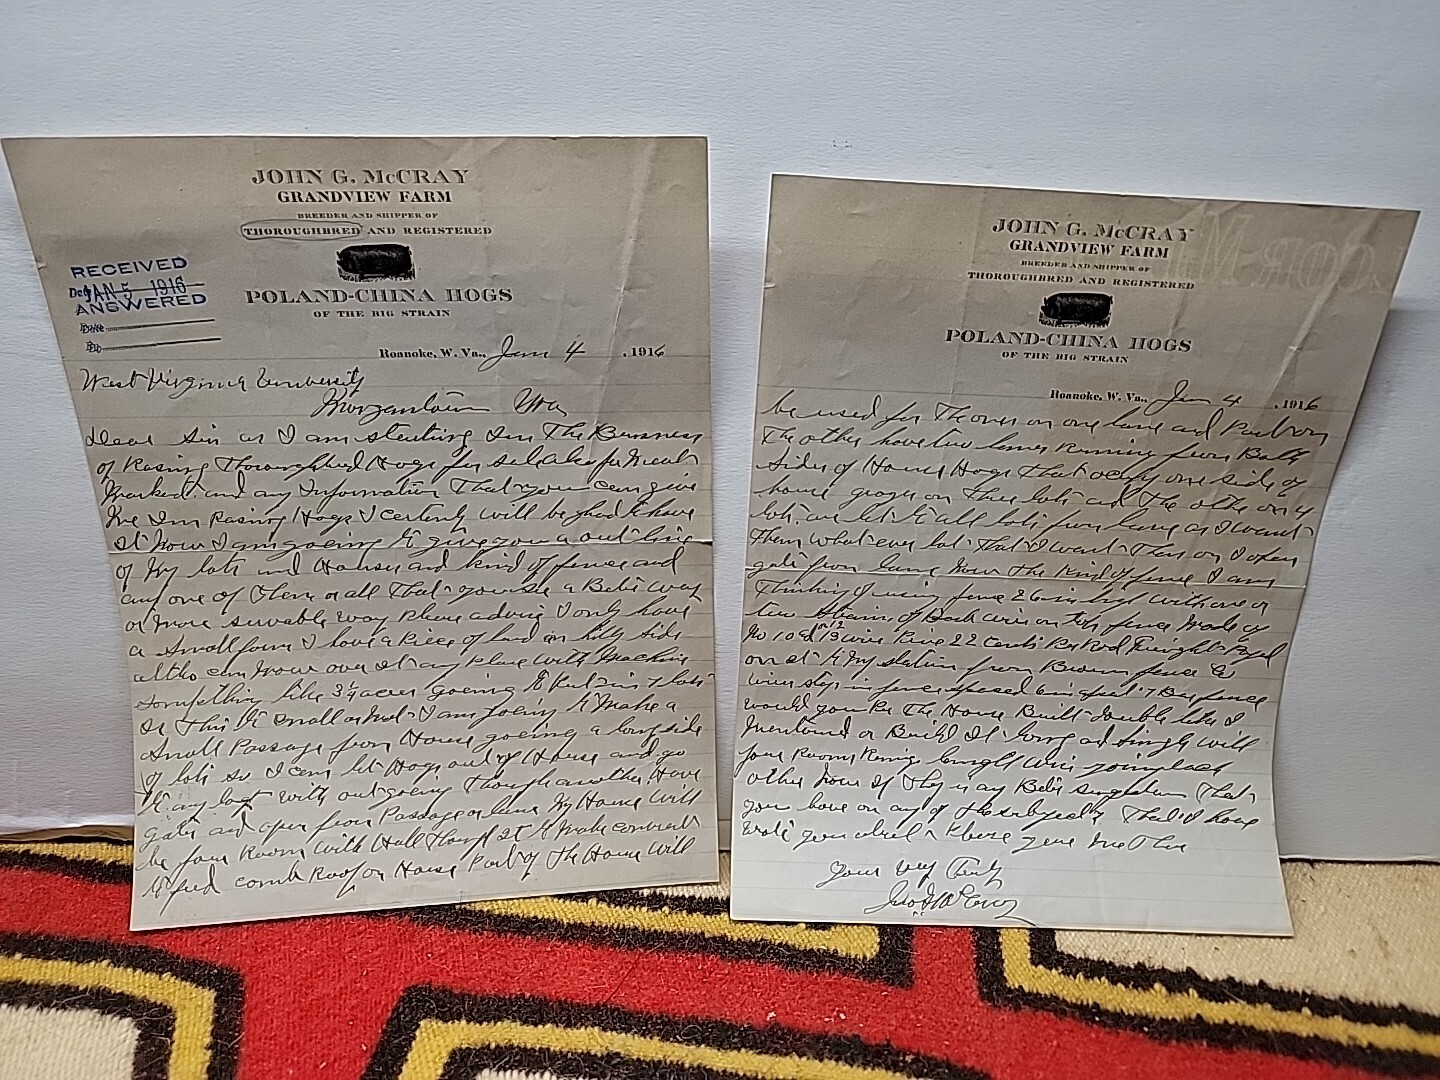 JOHN G. McCRAY
GRANDVIEW FARM
BREEDER AND SHIPPER OF
THOROUGHBRED AND REGISTERED
POLAND-CHINA HOGS
OF THE BIG STRAIN
RECEIVED
JAN 5 1916
ANSWERED
Date
By
Roanoke, W. Va., Jan 4 , 1916
West Virginia University
Morgantown WVa
Dear Sir as I am starting Inn The Business
of Rasing Thoroughbred Hogs for sale also for Meat
Market and any Information That you can give
Me Inn Rasing Hogs I certenly will be glad to have
it Now I am going to give you a out line
of My lots and House and kind of fence and
any one of them or all That you see a Beter way
or more servable way Please advise I only have
a small farm I have a Piece of land on hilly side
altho can mow over it any Place with Machine
something like 3½ acers going to Put in 7 lots
is This to small or Not I am going to Make a
small Passage from House going a long side
of lots so I can let Hogs out of House and go
to any lot with out going Through another. Have
gates and open from Passage or lane My House will
be four Room with Hall Through it to Make convenient
to feed comb Roof on House Part of The House will
JOHN G. McCRAY
GRANDVIEW FARM
BREEDER AND SHIPPER OF
THOROUGHBRED AND REGISTERED
POLAND-CHINA HOGS
OF THE BIG STRAIN
Roanoke, W. Va., Jan 4 , 1916
be used for Thones on one lane and Part on
The other have two lanes Running from Both
sides of House Hogs That ocupy one side of
house graze on Three lots and The other on 4
lots, are let to all lots from lane as I want
Them what ever lot That I want Them on I open
gate from lane Now The Kind of fence I am
Thinking of using fence 26 in high with one or
two strains of Barb wire on top fence Made of
No 10 and 13 wire Price 22 cents Per Rod Freight Payed
on it to My station from Brown fence Co
wire stays in fence spaced 6 in apart 7 Bar fence
would you Be The House Built double like I
Mentiond or Build it long and single with
four Rooms
other Now if They is any Beter sugestion That
you have on any of the subjects That I have
wrote you about Please give me Them
Your very Truly
Jno G McCray